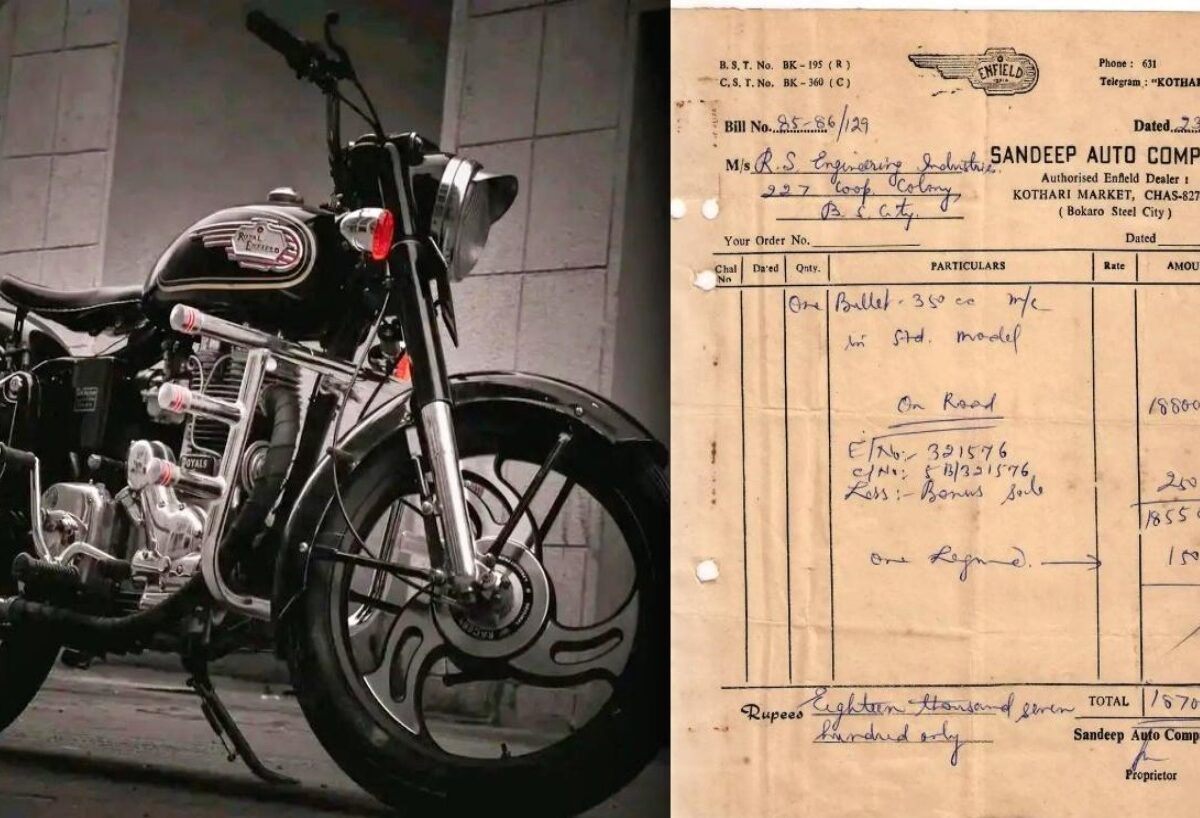 ROYAL
ENFIELD
ROYALS
B. S. T. No. BK-195 ( R )
C. S. T. No. BK-360 ( C )
ENFIELD
Phone : 631
Telegram : "KOTHAR
Bill No. 85-86/129
Dated 23
M/s R.S. Engineering Industries.
227 Coop. Colony
B. S. City.
SANDEEP AUTO COMP
Authorised Enfield Dealer :
KOTHARI MARKET, CHAS-827
( Bokaro Steel City )
Your Order No.
Dated
Chal No
Dated
Qnty.
PARTICULARS
Rate
AMOU
One Bullet - 350 cc m/c
in Std. model
On Road 18800
E/No:- 321576
C/No:- 5B/321576
Less :- Bonus Sale 250
1855
one Legurd. 150
Rupees Eighteen thousand seven
hundred only
TOTAL 1870
Sandeep Auto Comp
Proprietor